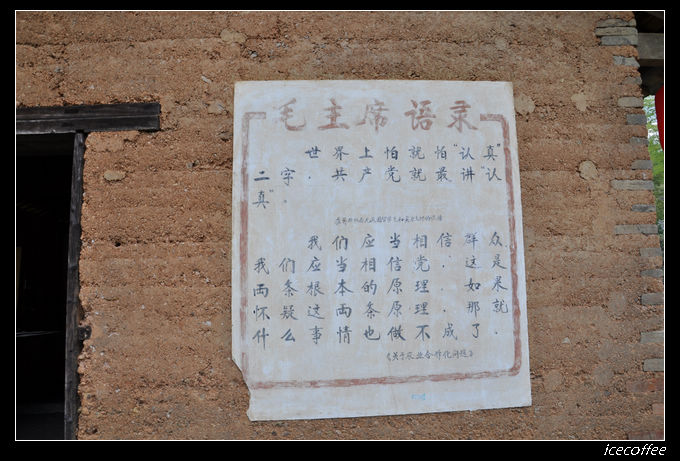 毛主席语录
世界上怕就怕“认真”
二字，共产党就最讲“认
真”。
我们应当相信群众，
我们应当相信党，这是
两条根本的原理，如果
怀疑这两条原理，那就
什么事情也做不成了．
《关于农业合作化问题》
icecoffee